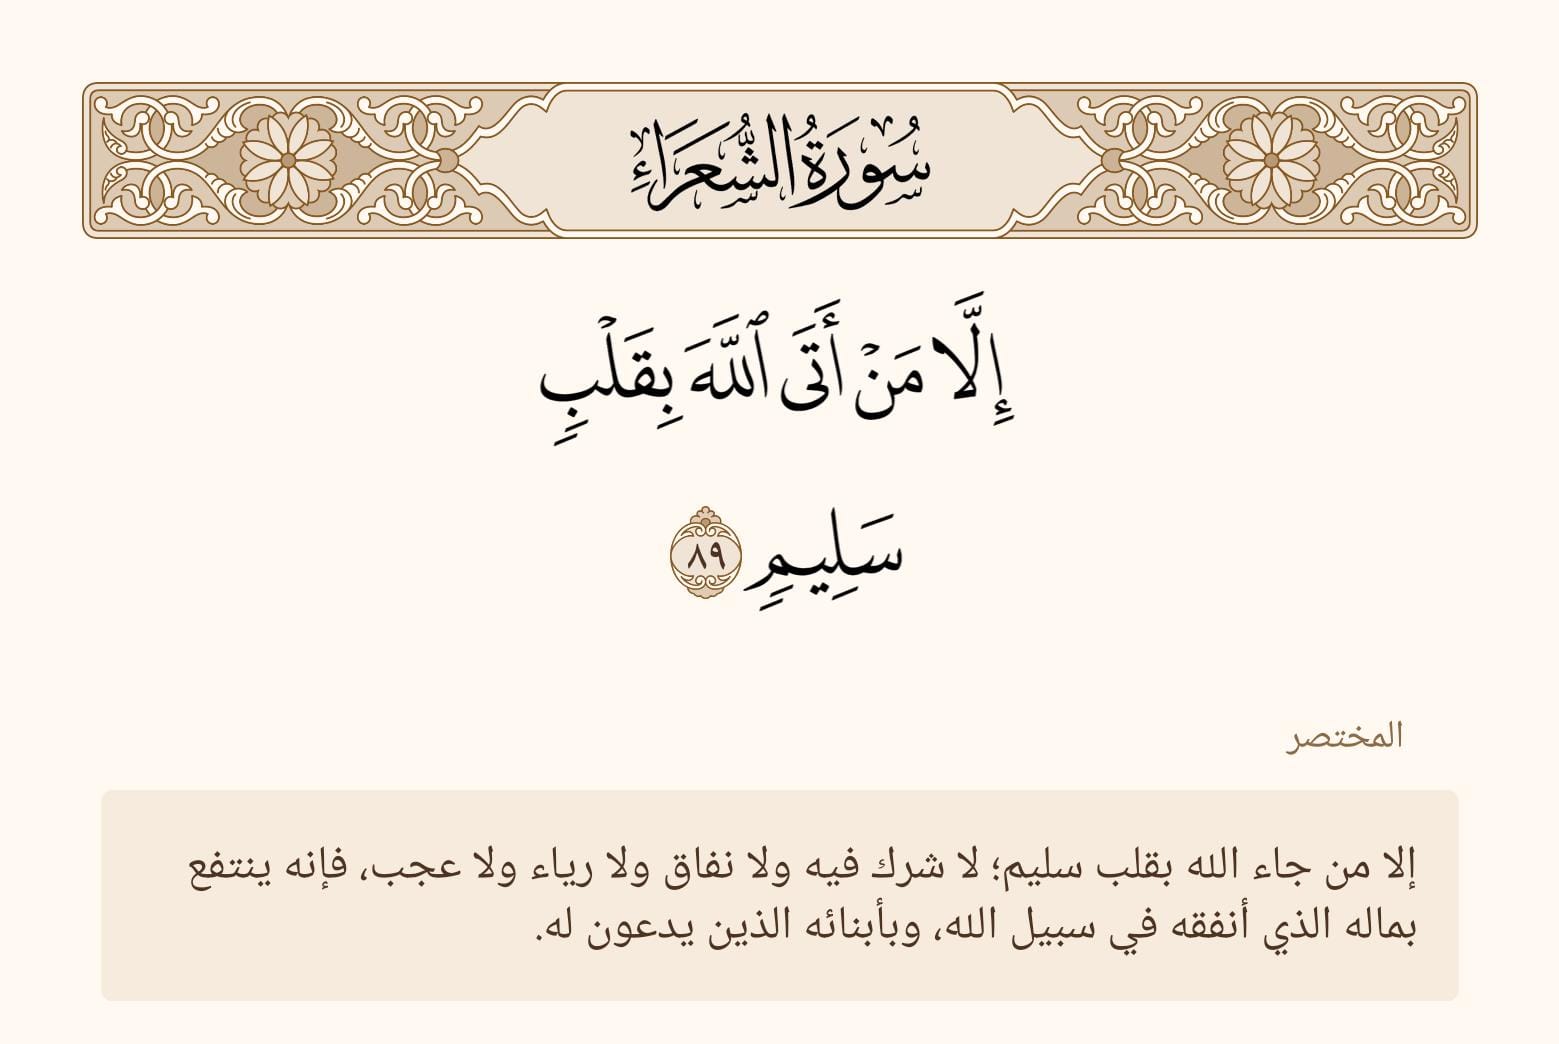 سُورَةُ الشُّعَرَاءِ
إِلَّا مَنۡ أَتَى ٱللَّهَ بِقَلۡبٖ
سَلِيمٖ ٨٩
المختصر
إلا من جاء الله بقلب سليم؛ لا شرك فيه ولا نفاق ولا رياء ولا عجب، فإنه ينتفع
بماله الذي أنفقه في سبيل الله، وبأبنائه الذين يدعون له.